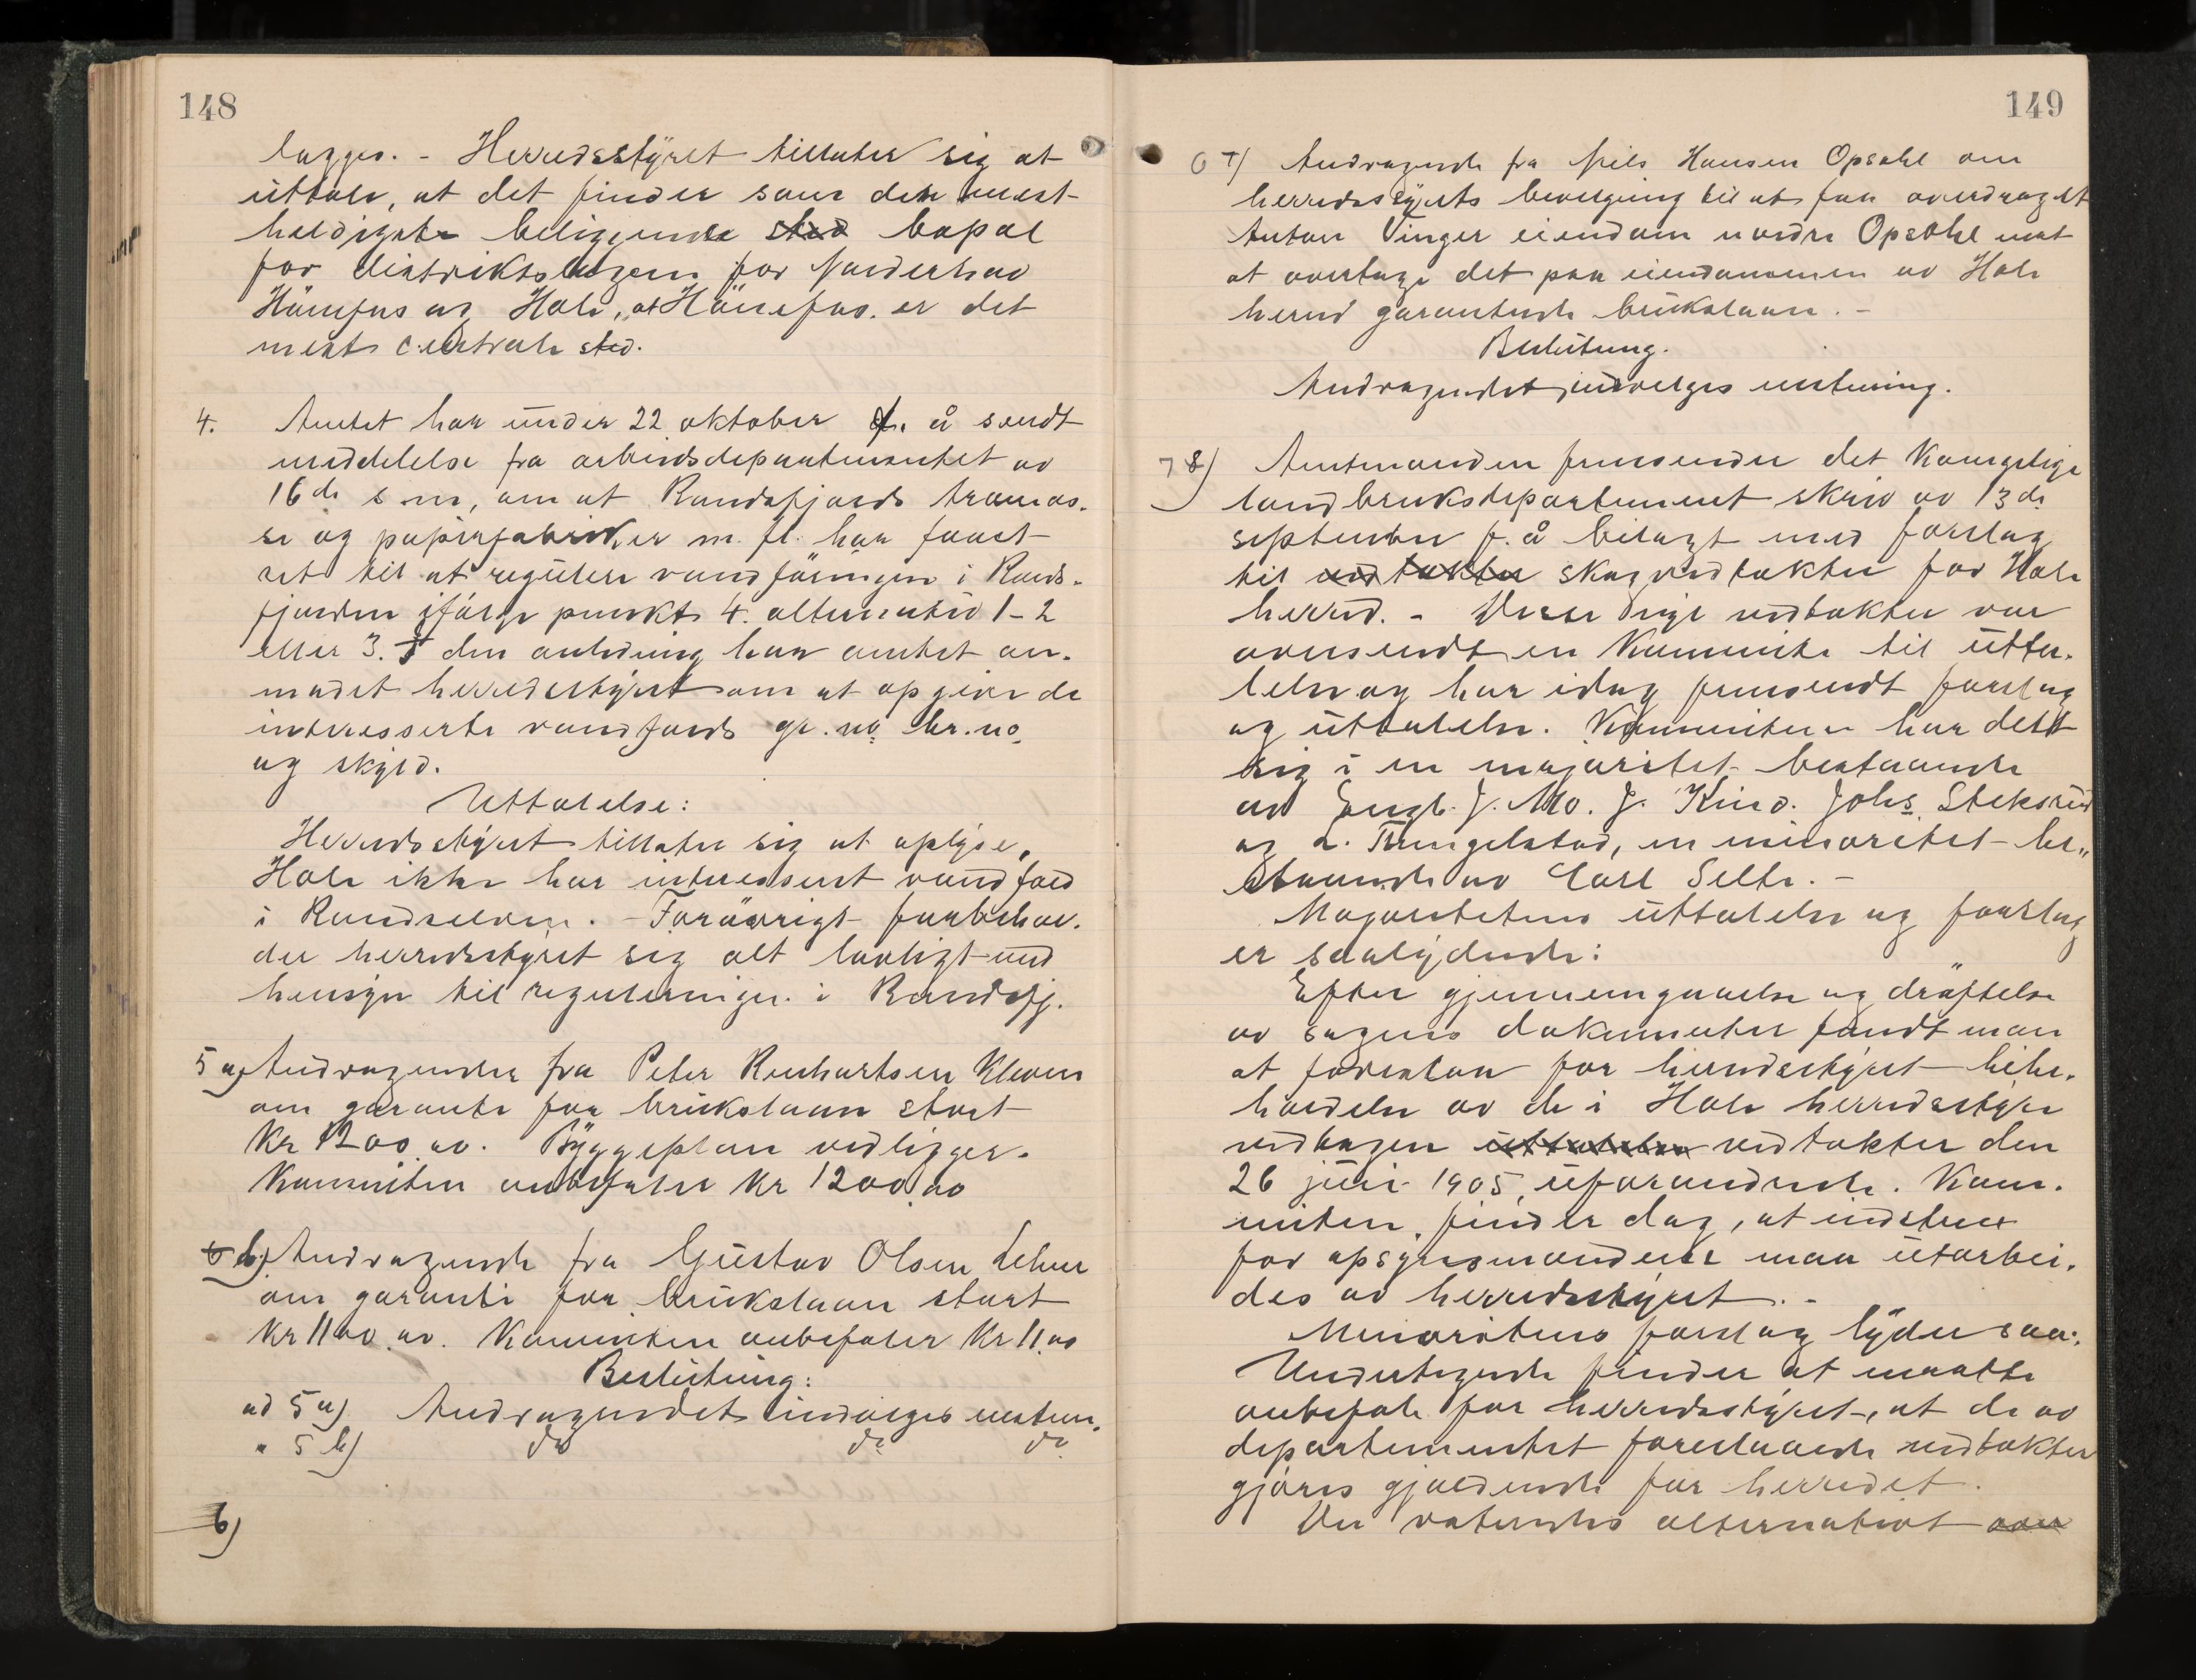 148
lægges. - Herredsstyret tillater sig at
uttale, at det finder som den mest
heldigste beliggende sted bopæl
for distriktslægen for Norderhov
Hönefos og Hole, at Hönefos er det
mest centrale sted.
4. Amtet har under 22 oktober d. å sendt
meddelelse fra arbeidsdepartementet av
16de s m, om at Randsfjords træmas-
se og papirfabriker m. fl. har søkt
ret til at regulere vandföringen i Rands-
fjorden ifölge punkt 4. alternativ 1-2
eller 3. I den anledning har amtet an-
modet herredsstyret om at opgive de
interesserte vandfalds gr. no br. no
og skyld.
Uttalelse:
Herredsstyret tillater sig at oplyse,
Hole ikke har interessert vandfald
i Randselven. - Forövrigt forbehol-
der herredsstyret sig alt lovligt med
hensyn til reguleringen i Randsfj.
5 a) Andragende fra Peter Renhartsen Kleven
om garanti for brukslaan stort
Kr 1200.00. Byggeplan vedligger.
Komiteen anbefaler Kr 1200.00
6 b) Andragende fra Gustav Olsen Lehne
om garanti for brukslaan stort
Kr 1100.00. Komiteen anbefaler Kr 11.00
Beslutning:
ad 5 a) Andragendet indvilges enstem.
" 5 b) do do do
6)
149
6 7) Andragende fra Nils Hansen Opsahl om
herredsstyrets bevilgning til at faa overdraget
Anton Vinger eiendom nordre Opsahl mot
at overtage det paa eiendommen av Hole
herred garanterte brukslaan. -
Beslutning.
Andragendet indvilges enstemmig.
7 8) Amtmanden fremsender det Kongelige
landbruksdepartement skriv av 13de
september f. å bilagt med forslag
til vedtekter skogvedtekter for Hole
herred. - Disse vedtekter var
oversendt en Kommite til utta-
lelse og har idag fremsendt forslag
og uttalelse. Kommiteen har delt
sig i en majoritet bestaaende
av Engb. J. Mo. J. Kind. Johs Steksrud
og L. Tbringelstad, en minoritet be-
staaende av Carl Selte. -
Majoritetens uttalelse og forslag
er saalydende:
Efter gjennemgaaelse og dröftelse
av sagens dokumenter fandt man
at forestaa for herredsstyret bibe-
holdelse av de i Hole herredsstyre
vedtagen uttalelse vedtekter den
26 juni 1905, uforandrede. Kom-
miteen finder dog, at indstrux
for opsynsmandene maa utarbei-
des av herredsstyret. -
Minoritetens forslag lyder saa:
Undertegnede finder at maatte
anbefale for herredsstyret, at de av
departementet foreslaaede vedtekter
gjöres gjældende for herredet.
Der voteredes alternativt over